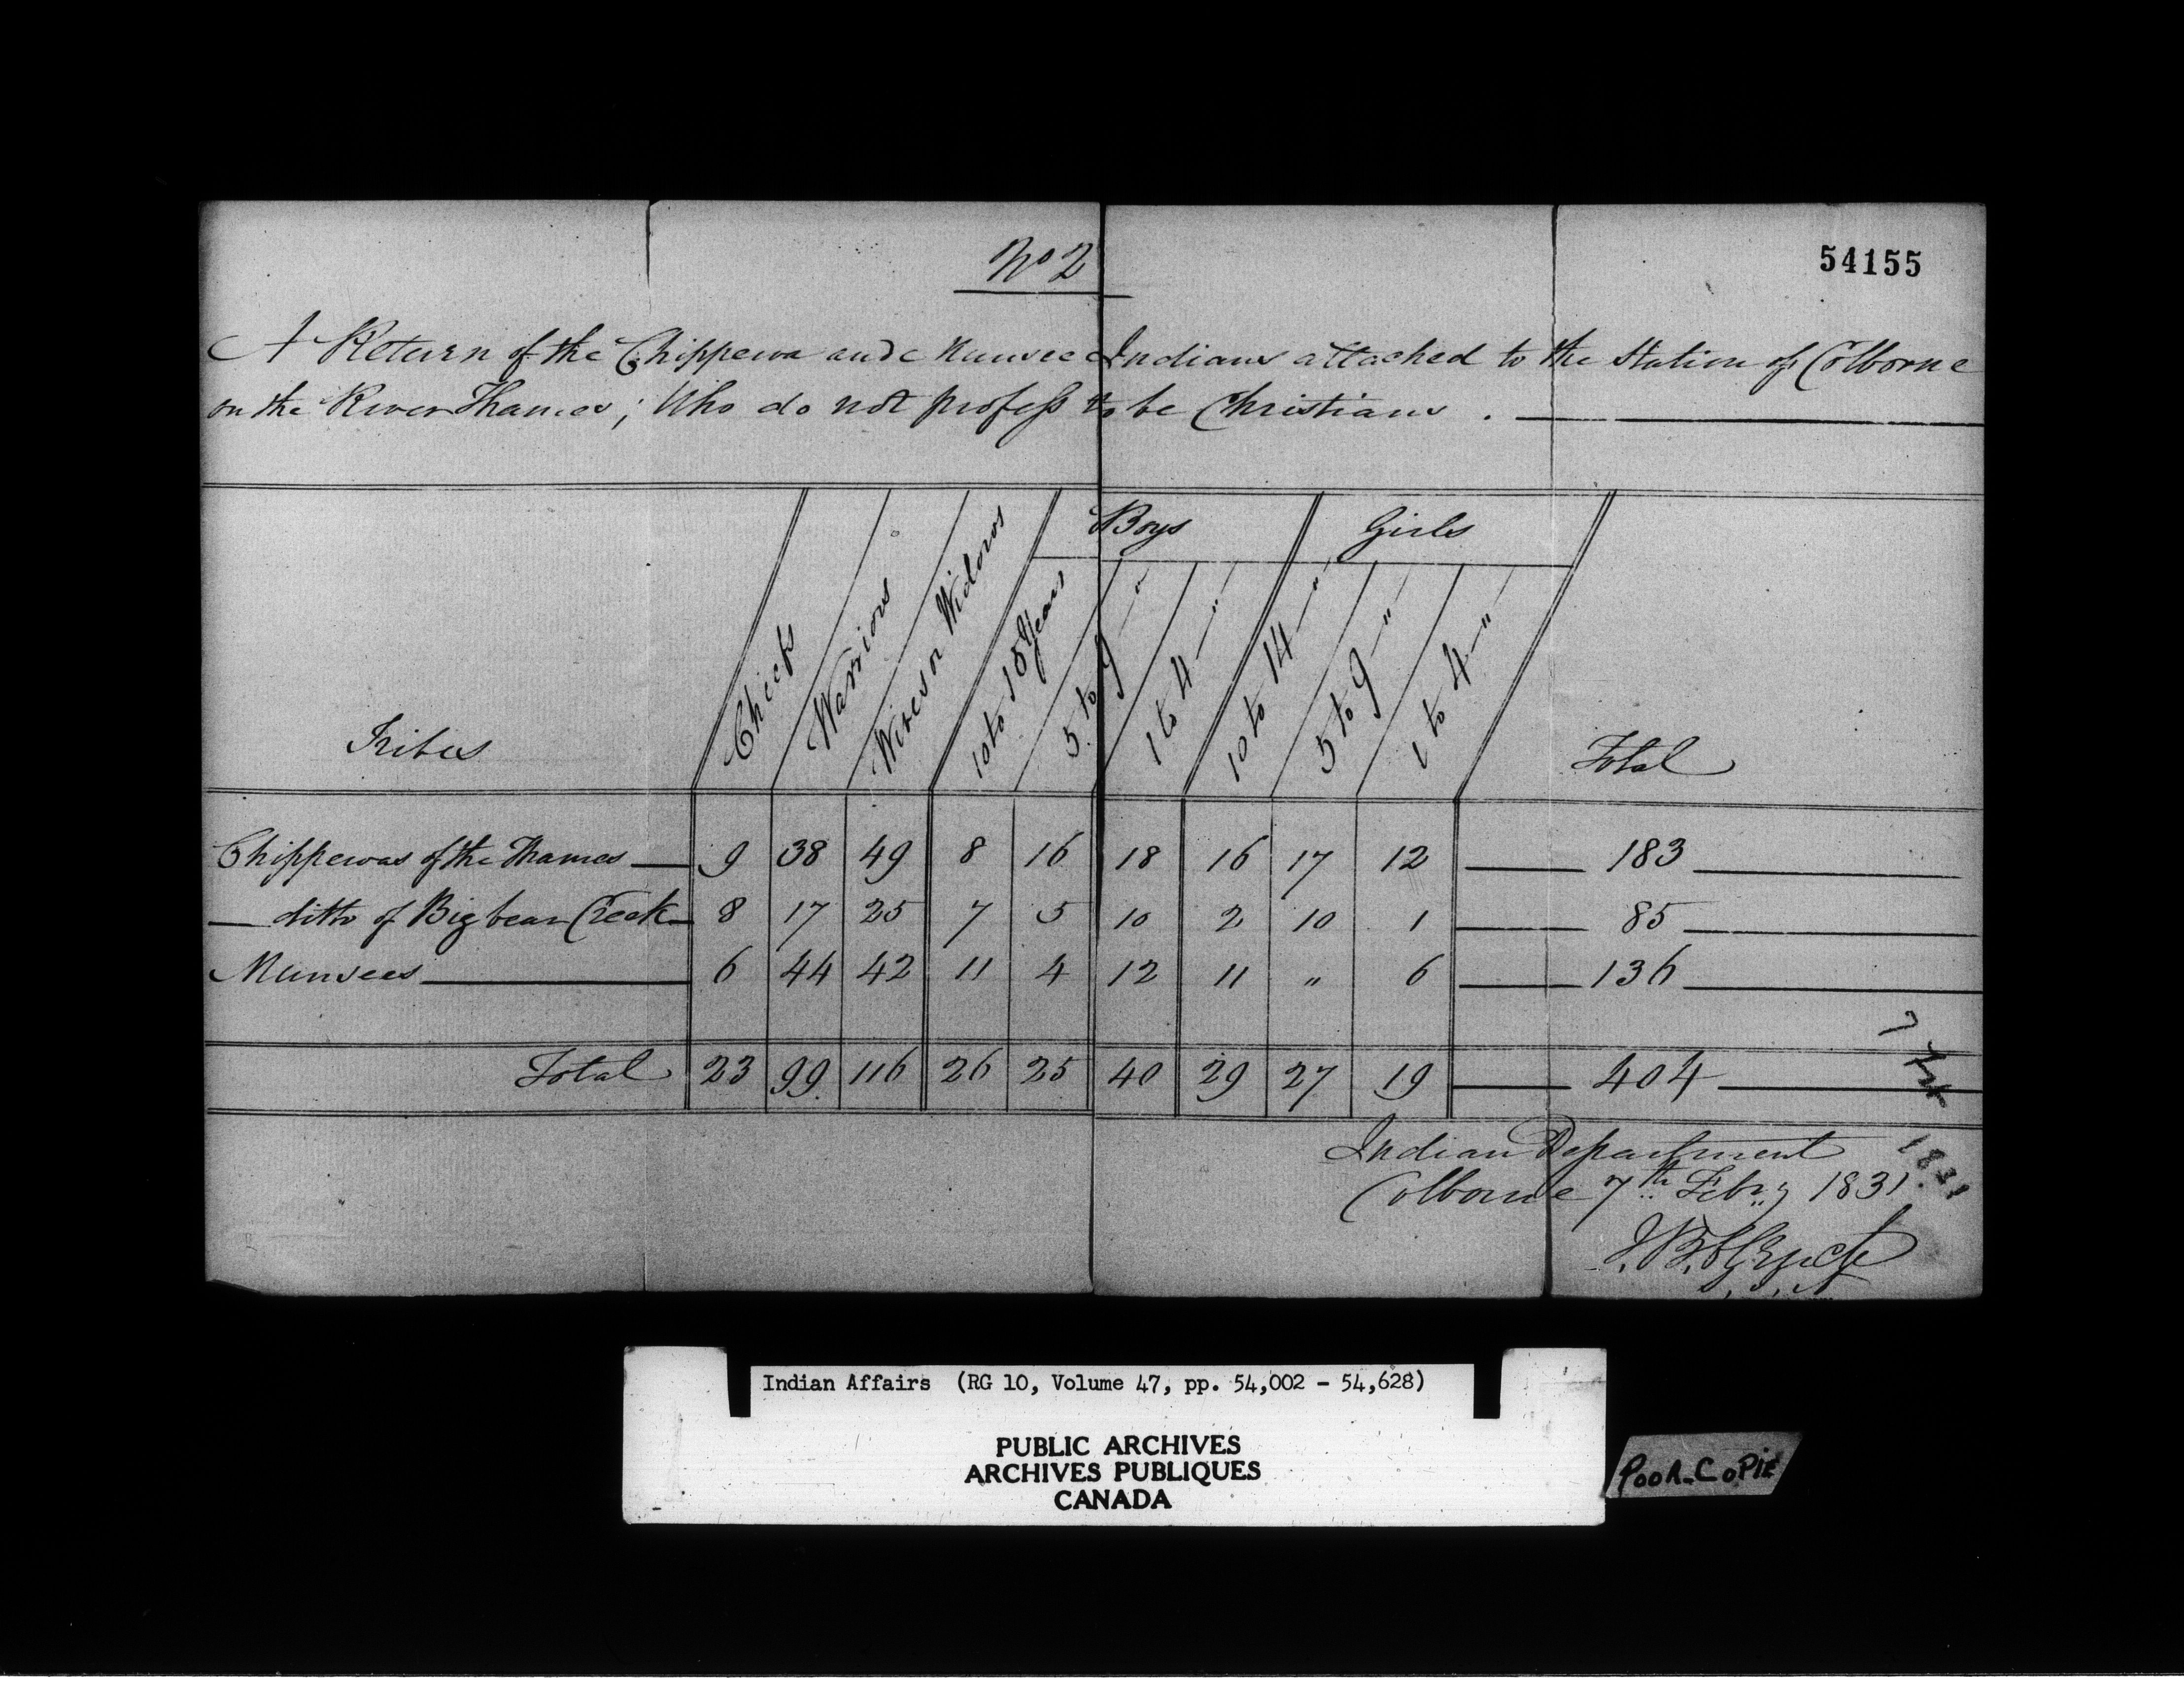 No 2
54155
A Return of the Chippewa and Munsee Indians attached to the Station of Colborne
on the River Thames; Who do not profess to be Christians.
Boys Girls
Tribes Chiefs Warriors Wives or Widows 10 to 15 Years 5 to 9 — " 1 to 4 — " 10 to 14 — " 5 to 9 — " 1 to 4 — " Total
Chippewas of the Thames 9 38 49 8 16 18 16 17 12 183
ditto of Big bear Creek 8 17 25 7 5 10 2 10 1 85
Munsees 6 44 42 11 4 12 11 " 6 136
Total 23 99 116 26 25 40 29 27 19 404
7
1831
Indian Department
Colborne 7th Feby 1831
Indian Affairs (RG 10, Volume 47, pp. 54,002 - 54,628)
PUBLIC ARCHIVES
ARCHIVES PUBLIQUES
CANADA
POOR COPIE